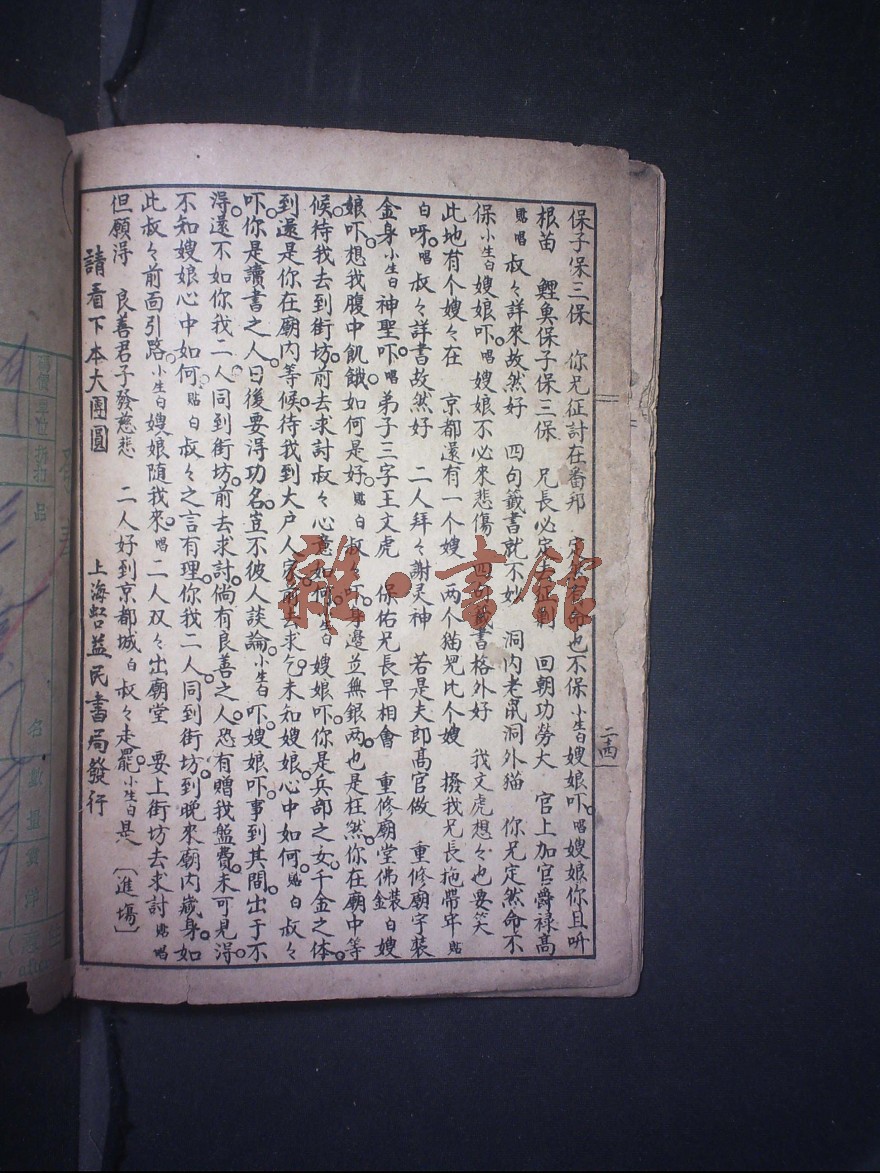 保子保三保　你兄征討在番邦　定然有命也不保小生白嫂娘吓。唱嫂娘你且听
根苗　鯉魚保子保三保　兄長必定去征剿　回朝功勞大　官上加官爵祿高
貼唱　叔々詳來故然好　四句籤書就不妙　洞內老鼠洞外猫　你兄定然命不
保小生白嫂娘吓。唱嫂娘不必來悲傷　四句籤書格外好　我文虎想々也要笑
此地有个嫂々在　京都還有一个嫂　两个猫咒比个嫂　撥我兄長拖帶牢　貼
白呀。唱叔々詳書故然好　二人拜々謝灵神　若是夫郎髙官做　重修廟宇裝
金身小生白神聖吓。唱弟子三字王文虎　保佑兄長早相會　重修廟堂佛金裝　白嫂
娘吓。想我腹中飢餓如何是好。貼白叔々吓身邊並無銀两。也是枉然。你在廟中等
候。待我去到街坊前去求討叔々心意如何。小生白嫂娘吓。你是兵部之女千金之体。
到還是你在廟内等候待我到大户人家前去求乞。未知嫂娘心中如何。貼白叔々
吓。你是讀書之人。日後要得功名。豈不彼人談論。小生白吓嫂娘吓事到其間。出于不
得。還不如你我二人同到街坊。前去求討。倘有良善之人。恐有贈我盤費。未可見得。
不知嫂娘心中如何。貼白叔々之言有理。你我二人。同到街坊。到晚來廟内歲身。如
此叔々前面引路。小生白嫂娘随我來。唱二人双々出廟堂　要上街坊去求討　貼唱
但願得　良善君子發慈悲　二人好到京都城　白叔々走罷。小生白是　〔進塲〕
請看下本大團圓　上海虹口益民書局發行
二十四
雜·書館
品
名
數
量
實